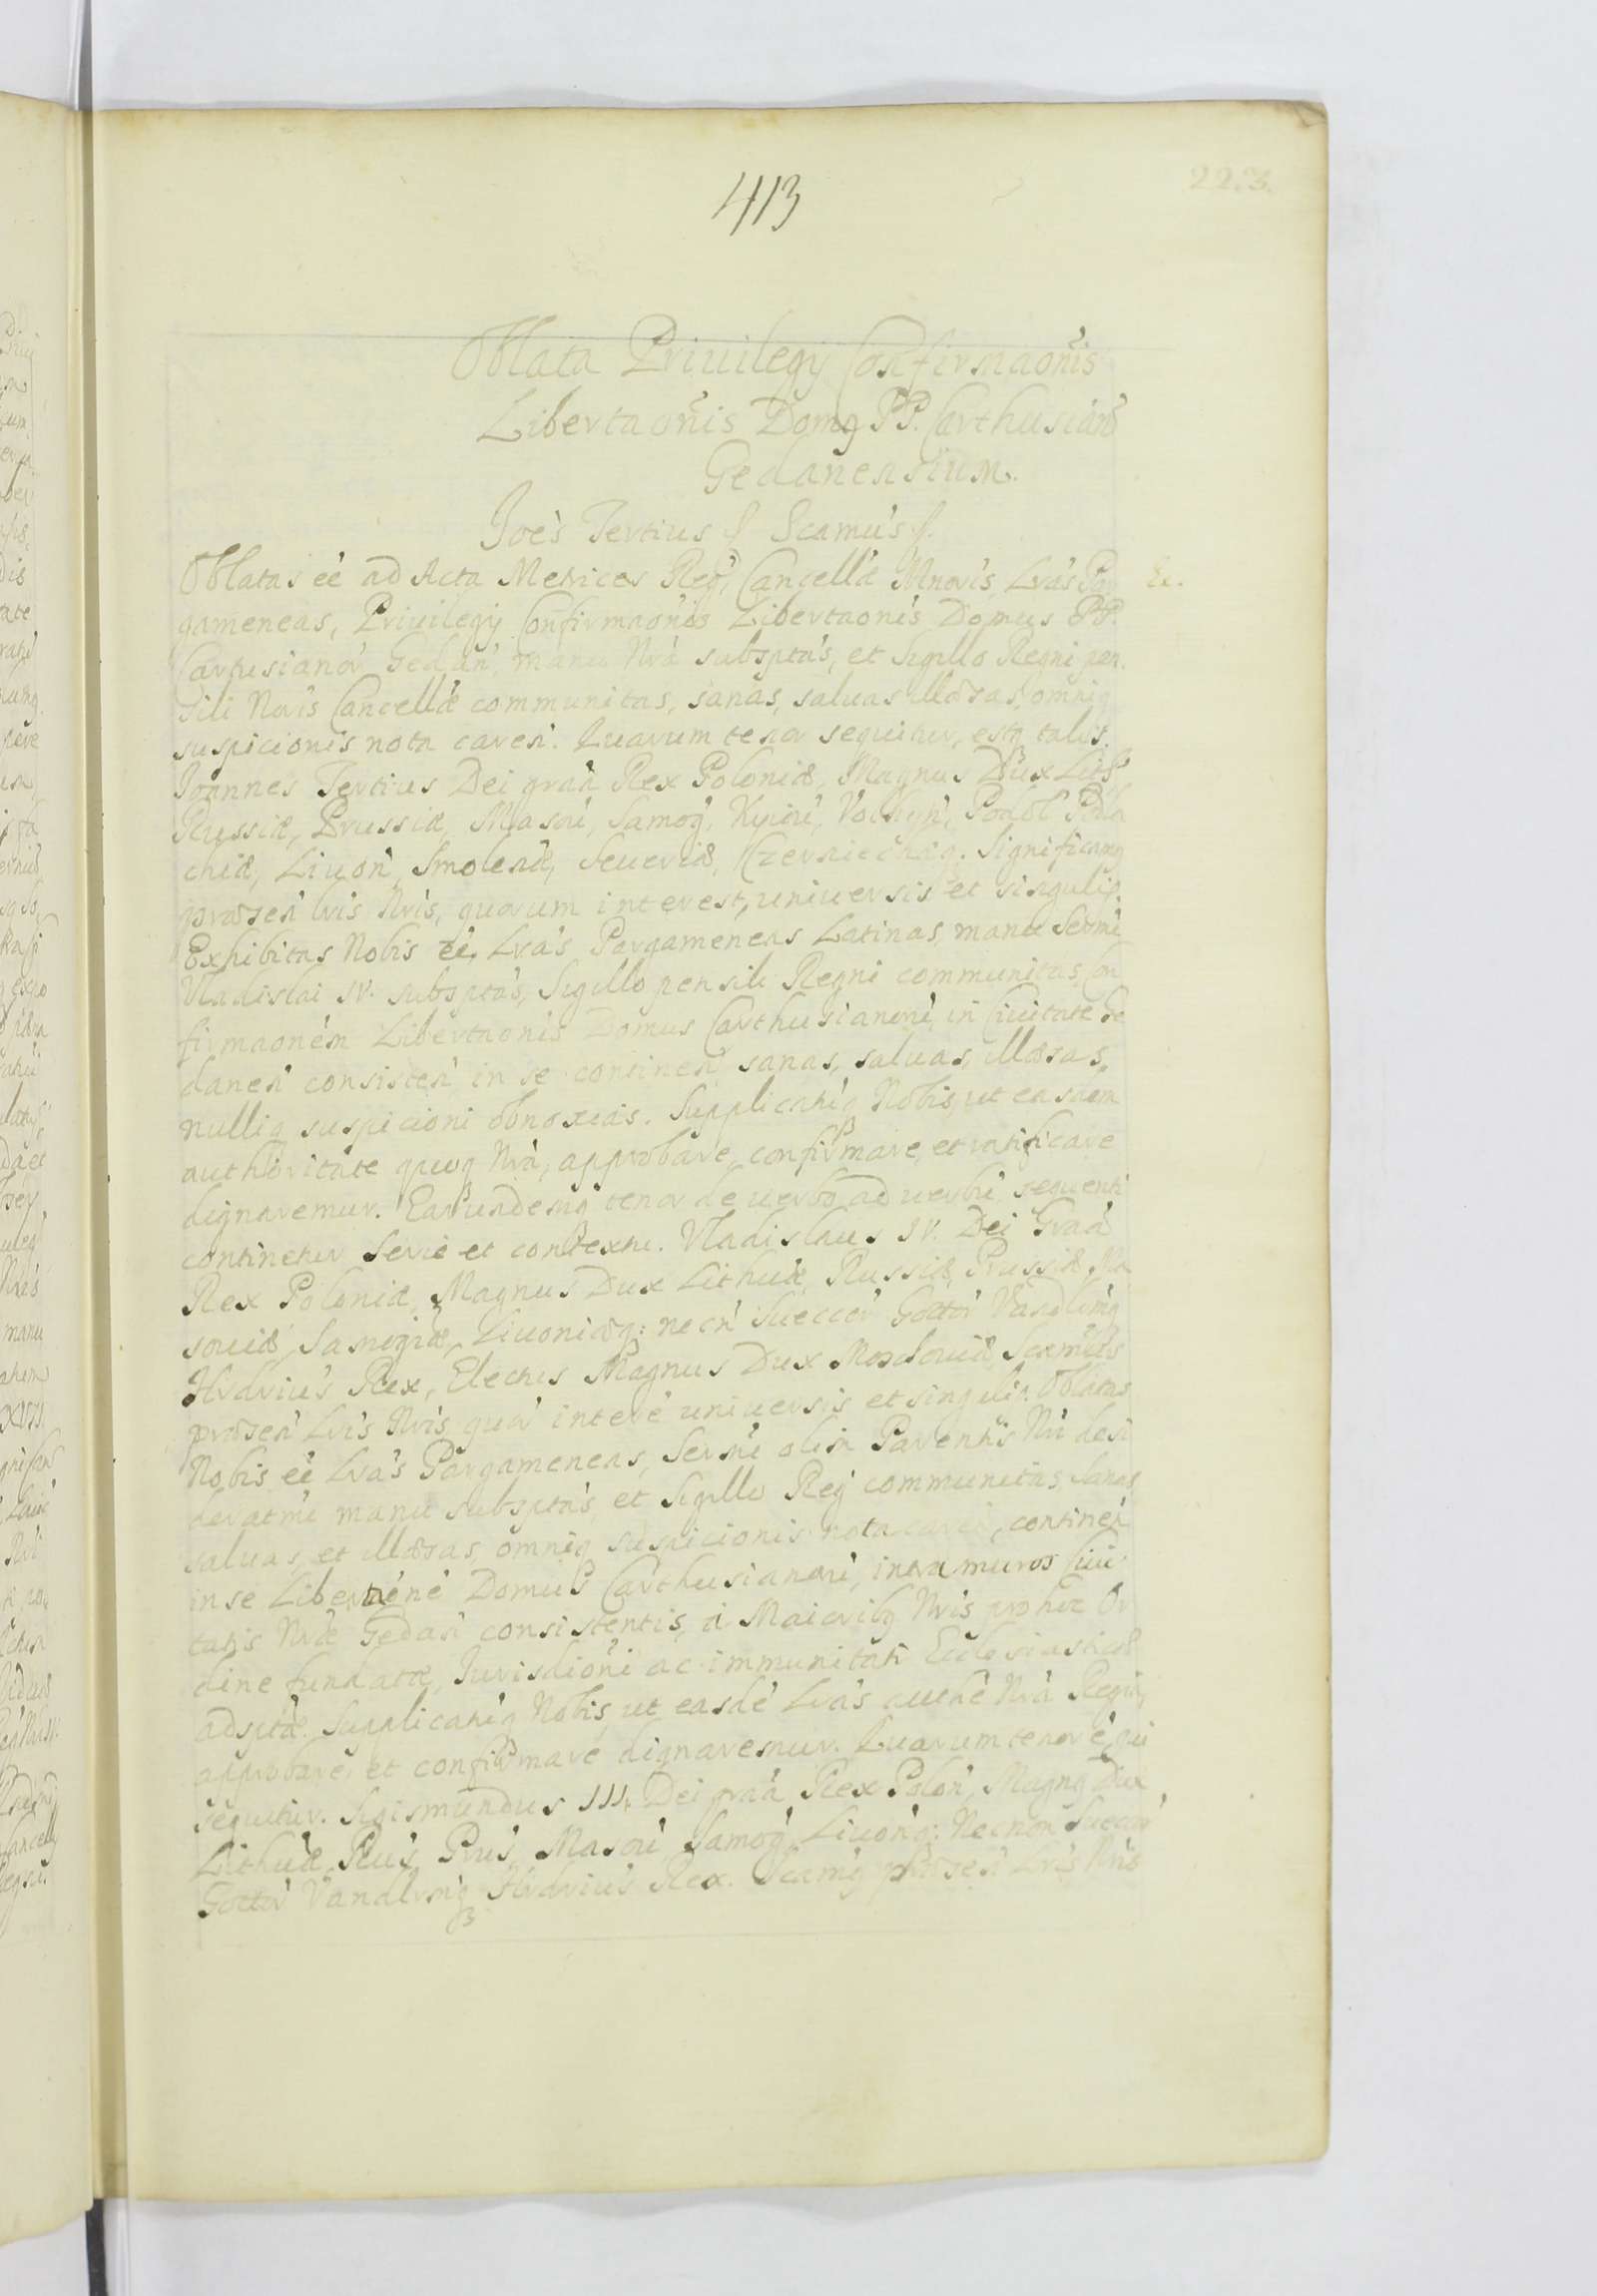 413
223.
Oblata Priuilegÿ Confirmaonis
Libertaonis Domꝯ PP. Carthusian
Gedanensium.
Joes Tertius Scamus
Oblatas eé ad Acta Metrices Reg, Cancellæ Mnoris Lras Par
gameneas, Priuilegÿ Confirmaonis Libertaonis Domus PP.
Cartusianor Gedan, manu Nrá subsptás, et Sigillo Regni pen
sili Noris Cancellæ communitas, sanas, saluas illæsas, omniq
suspicionis nota caren. Quarum tenor sequitur, estq talis.
Joannes Tertius Dei graá Rex Poloniæ, Magnus Dux Lith
Russiæ, Prussiæ, Masou, Samog, Kyiou, Volhyn, Podol Podla
chiæ, Liuon, Smolenæ, Seueriæ, Czerniechæq. Significamꝯ
præsen lris Nris, quorum interest, uniuersis et singulis.
Exhibitas Nobis eé Lras Pargameneas Latinas, manu Sermi
Vladislai IV. subsptás, Sigillo pensili Regni communitas Con
firmaoném Libertaonis Domus Carthusianorú in Ciuitate Ge
danen consisten in se continen sanas, saluas, illæsas,
nulliq suspicioni obnoxias. Supplicatúq Nobis, ut easdem
authoritate quoq Nrá, approbare, confirmare, et ratificare
dignaremur. Earundemq tenor de uerbo ad uerbú sequenti
continetur Serie et contextu. Vladislaus IV. Dei Graá
Rex Poloniæ, Magnus Dux Lithuæ, Russiæ, Prussiæ, Ma
souiæ Samogiæ, Liuoniæq: necn Sueccor Gottor Vandlúmq
Hrdrius Rex, Electus Magnus Dux Moschouiæ, Scamus
præsen Lris Nris quor interé uniuersis et singulis. Oblatas
Nobis eé Lras Pargameneas, Sermi olim Parentis Nri desi
deratmi manu subsptás, et Sigillo Reg communitas, Sanas
saluas, et illæsas, omniq suspicionis nota caren, continen
in se Libertaoné Domus Carthusianorú, intra muros Ciui
tatis Nræ Gedan consistentis, a Maioribꝯ Nris pro hoc Or
dine fundatæ, Jurisdioni ac immunitati Ecclesiasticæ
adsptæ. Supplicatúq Nobis, ut easdé Lras authé Nrá Regiá,
approbare, et confirmare dignaremur. Quarum tenor é, qui
sequitur. Sigismundus III. Dei graá Rex Polon, Magnꝯ Dux
Lithuæ, Rus Prus Masou Samog, Liuonq: Necnon Sueccor
Gottor Vandlrmq Hrdrius Rex. Scamꝯ præsen Lris Nris